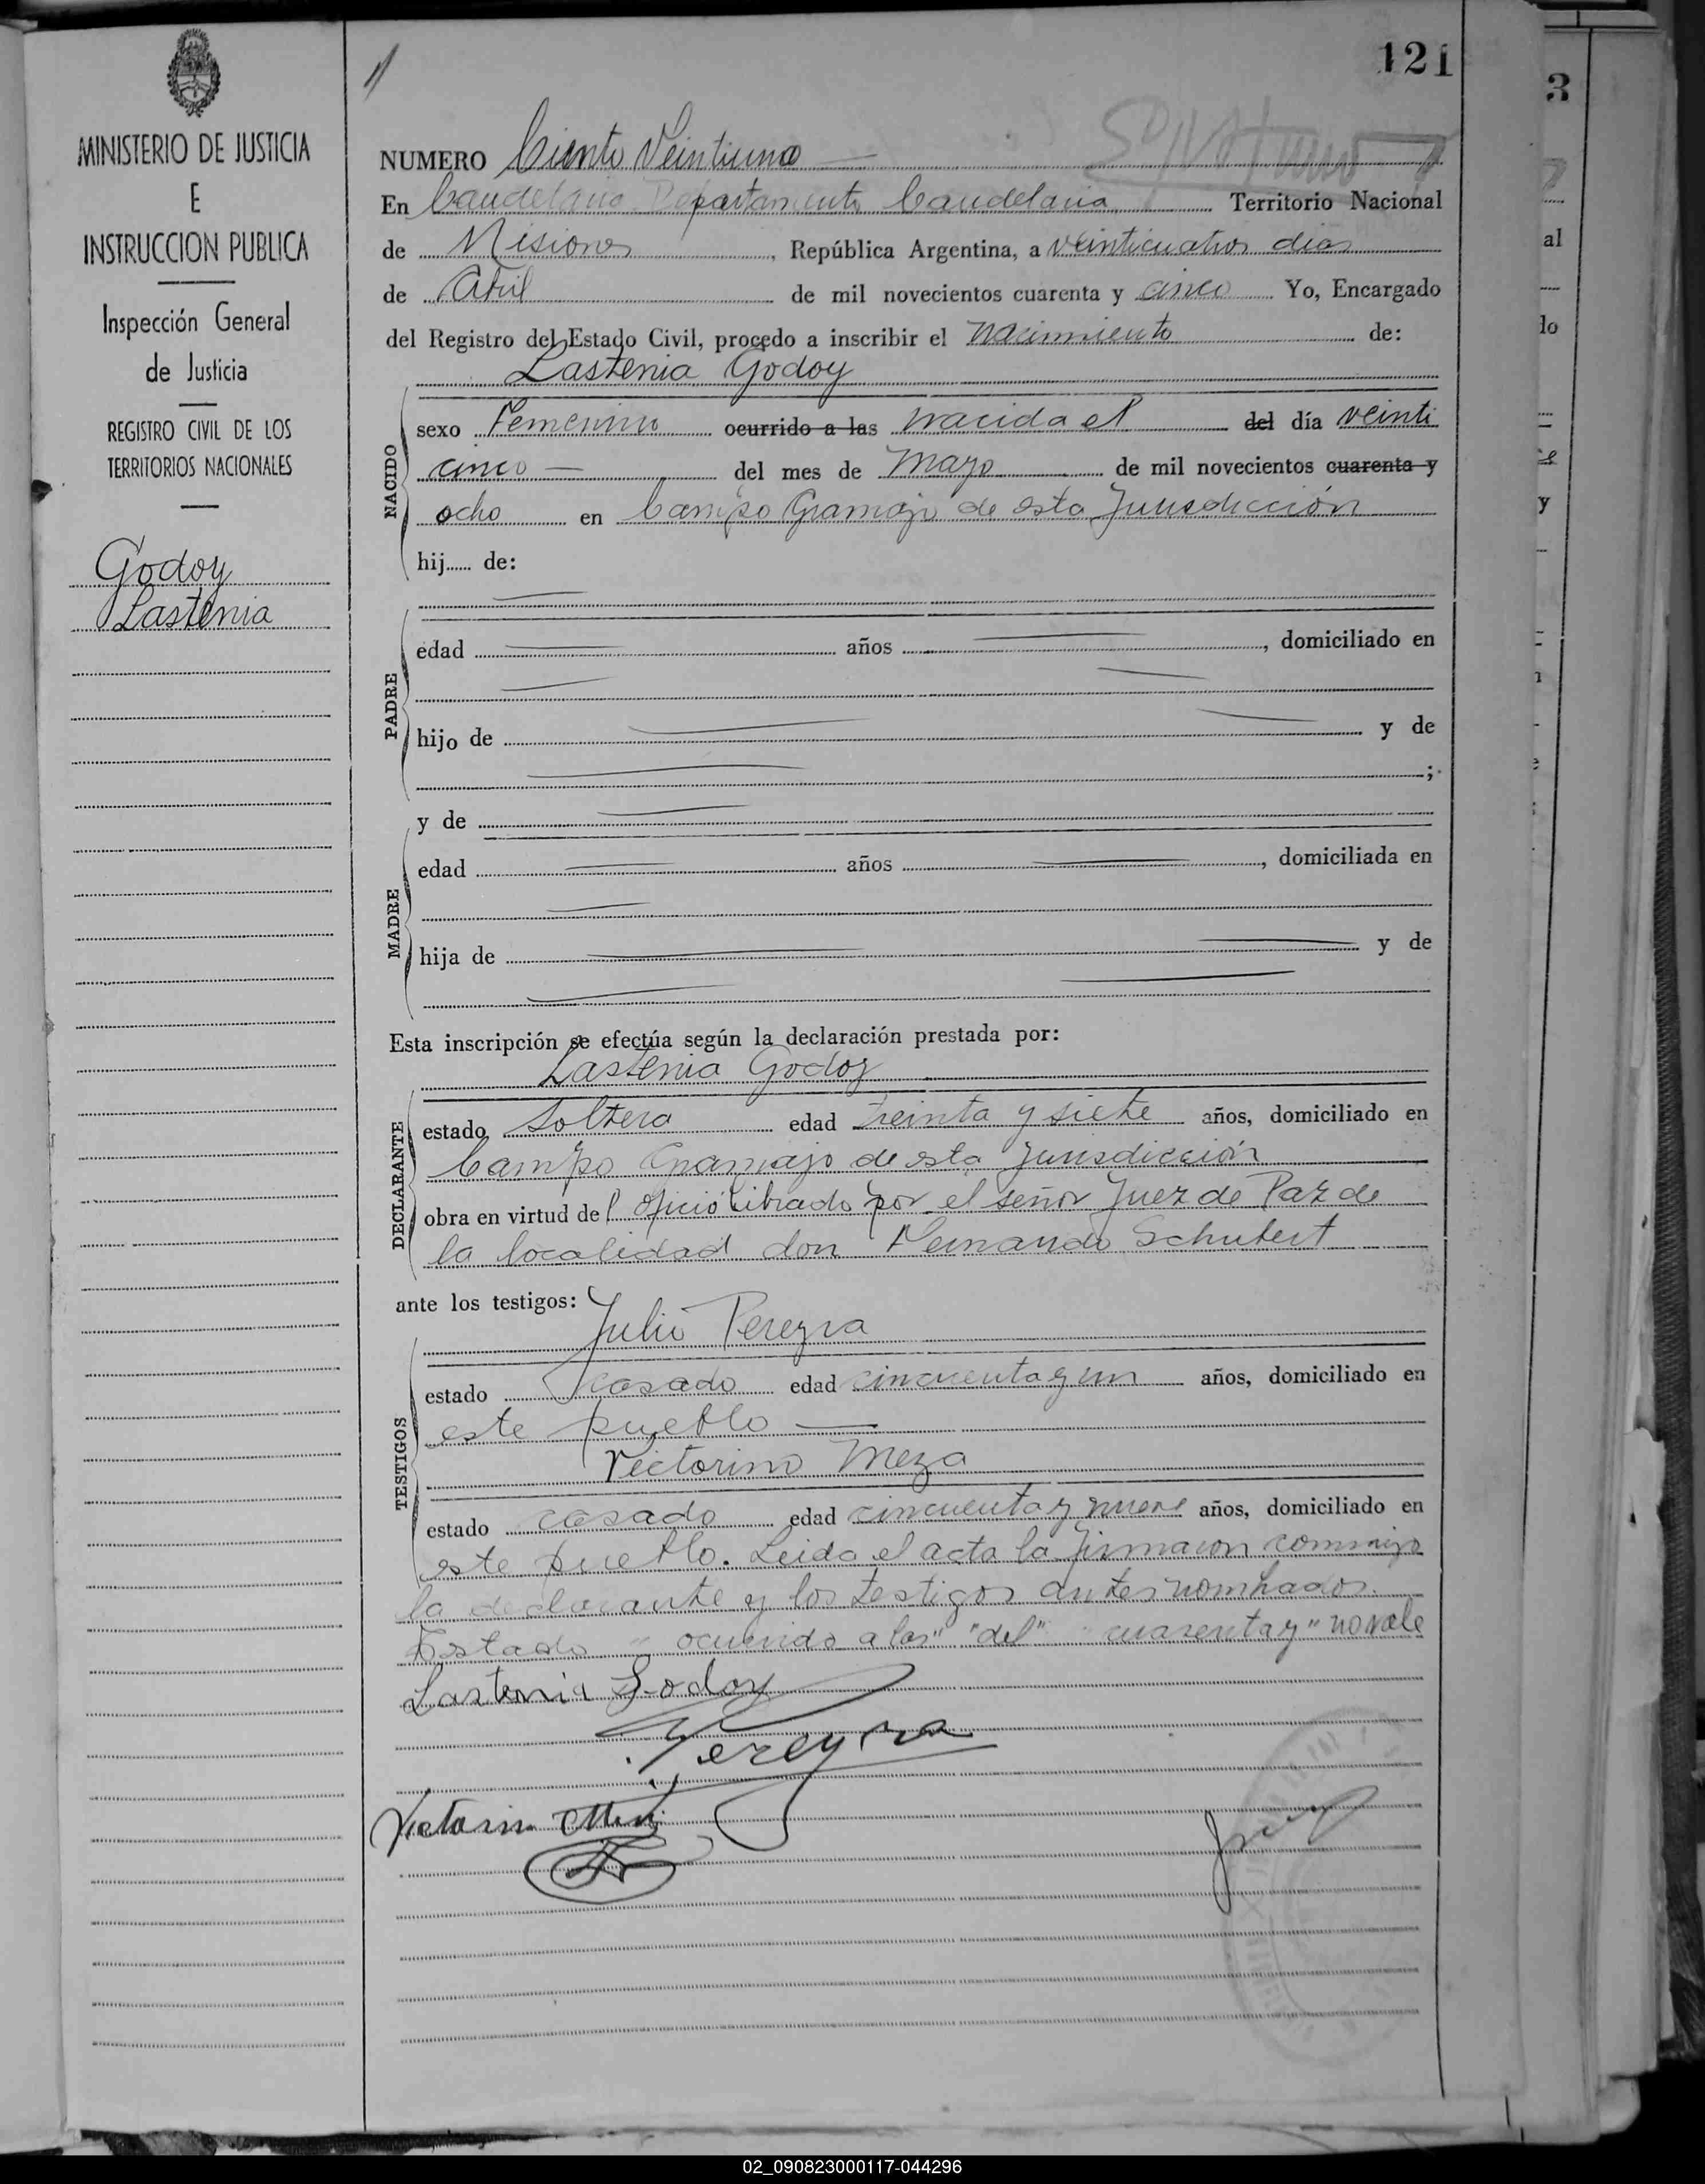 121
3
MINISTERIO DE JUSTICIA
E
INSTRUCCION PUBLICA
Inspección General
de Justicia
REGISTRO CIVIL DE LOS
TERRITORIOS NACIONALES
Godoy
Lastenia
NUMERO Ciento Veintiuno
En Candelaria Departamento Candelaria Territorio Nacional
de Misiones, República Argentina, a veinticuatro dias
de Abril de mil novecientos cuarenta y cinco Yo, Encargado
del Registro del Estado Civil, procedo a inscribir el nacimiento de:
Lastenia Godoy
NACIDO
sexo Femenino ocurrido a las nacida el del día veinti
cinco del mes de Mayo de mil novecientos cuarenta y
ocho en Campo Gramajo de esta Jurisdicción
hij...... de:
PADRE
edad años , domiciliado en
hijo de y de
;
MADRE
y de
edad años , domiciliada en
hija de y de
Esta inscripción se efectúa según la declaración prestada por:
Lastenia Godoy
DECLARANTE
estado Soltera edad treinta y siete años, domiciliado en
Campo Gramajo de esta Jurisdicción
obra en virtud del oficio librado por el señor Juez de Paz de
la localidad don Fernando Schubert
ante los testigos:
Julio Pereyra
TESTIGOS
estado casado edad cincuenta y un años, domiciliado en
este pueblo
Victorino Meza
estado casado edad cincuenta y nueve años, domiciliado en
este pueblo. Leida el acta la firmaron conmigo
la declarante y los testigos antes nombrados.
Testado "ocurrido a las" "del" "cuarenta y" no vale
Lastenia Godoy
Pereyra
02_090823000117-044296